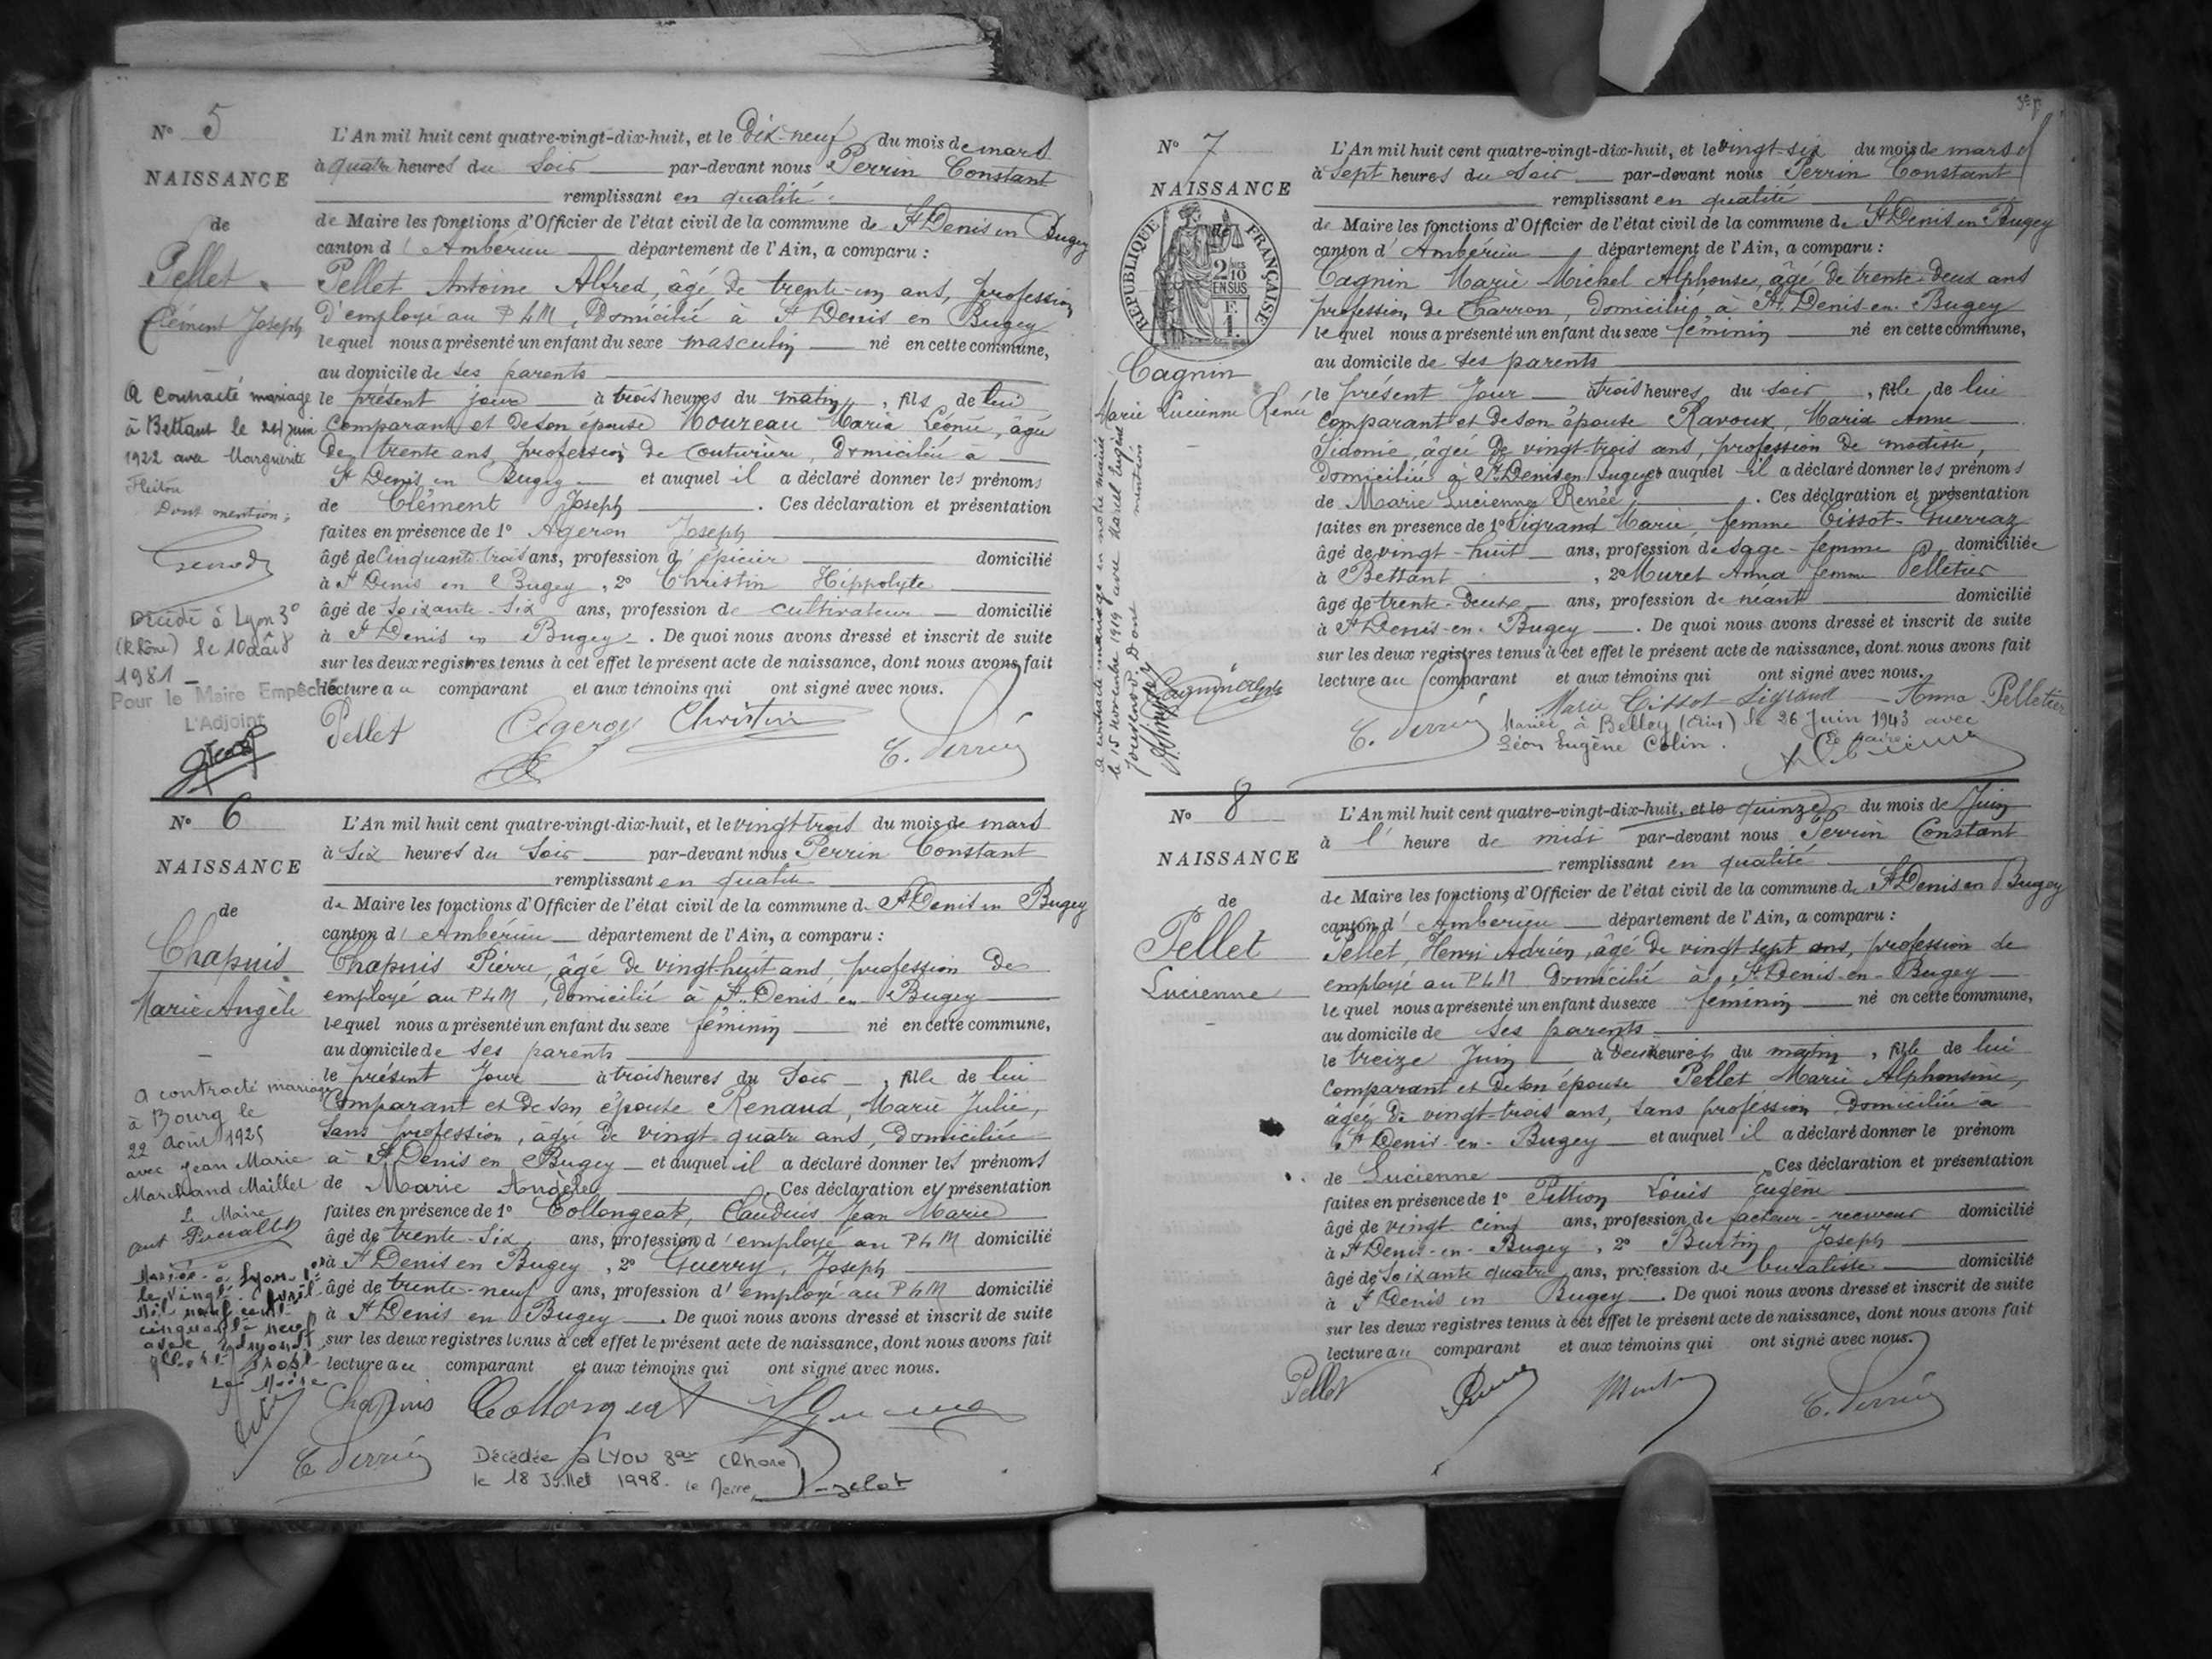 N° 5
NAISSANCE
de
Pellet
Clément Joseph
A contracté mariage
à Bettant le 24 juin
1922 avec Marguerite
Dont mention :
Décédé à Lyon 3e
(Rhône) le 10 août
1981
Pour le Maire Empêché
L'Adjoint
L'An mil huit cent quatre-vingt-dix-huit, et le Dix-neuf du mois de mars
à quatre heures du soir par-devant nous Perrin Constant
remplissant en qualité
de Maire les fonctions d'Officier de l'état civil de la commune de St Denis en Bugey
canton d' Ambérieu département de l'Ain, a comparu :
Pellet Antoine Alfred, âgé de trente-un ans, profession
D'employé au PLM, Domicilié à St Denis en Bugey
lequel nous a présenté un enfant du sexe masculin né en cette commune,
au domicile de ses parents
le présent jour à trois heures du matin, fils de lui
Comparant et de son épouse Moureau Maria Léonie, âgée
De trente ans, profession de couturière, Domiciliée à
St Denis en Bugey et auquel il a déclaré donner les prénoms
de Clément Joseph. Ces déclaration et présentation
faites en présence de 1° Ageron Joseph
âgé de Cinquante trois ans, profession d' épicier domicilié
à St Denis en Bugey, 2° Christin Hippolyte
âgé de soixante-six ans, profession de cultivateur domicilié
à St Denis en Bugey. De quoi nous avons dressé et inscrit de suite
sur les deux registres tenus à cet effet le présent acte de naissance, dont nous avons fait
lecture au comparant et aux témoins qui ont signé avec nous.
Pellet Ageron Christin
C. Perrin
N° 6
NAISSANCE
de
Chapuis
Marie Angèle
a contracté mariage
à Bourg le
22 Août 1925
avec Jean Marie
Marchand Maillet
Le Maire
Mariée à Lyon
le vingt Avril
Mil neuf cent
cinquante neuf
avec Edmond
Le Maire
L'An mil huit cent quatre-vingt-dix-huit, et le vingt trois du mois de mars
à six heures du soir par-devant nous Perrin Constant
remplissant en qualité
de Maire les fonctions d'Officier de l'état civil de la commune d. St Denis en Bugey
canton d' Ambérieu département de l'Ain, a comparu :
Chapuis Pierre, âgé de vingt-huit ans, profession De
employé au PLM, domicilié à St Denis en Bugey
lequel nous a présenté un enfant du sexe féminin né en cette commune,
au domicile de ses parents
le présent Jour à trois heures du Soir, fille de lui
Comparant et de son épouse Renaud, Marie Julie,
sans profession, âgée de vingt quatre ans, Domiciliée
à St Denis en Bugey et auquel il a déclaré donner les prénoms
de Marie Angèle. Ces déclaration et présentation
faites en présence de 1° Collongeat, Claudius Jean Marie
âgé de trente-six ans, profession d' employé au PLM domicilié
à St Denis en Bugey, 2° Guerry, Joseph
âgé de trente-neuf ans, profession d' employé au PLM domicilié
à St Denis en Bugey. De quoi nous avons dressé et inscrit de suite
sur les deux registres tenus à cet effet le présent acte de naissance, dont nous avons fait
lecture au comparant et aux témoins qui ont signé avec nous.
Chapuis Collongeat
C. Perrin
Décédée à LYON 8ème (Rhône)
le 18 Juillet 1998. le Maire,
N° 7
NAISSANCE
de
RÉPUBLIQUE FRANÇAISE
2/10
EN SUS
F.
1.
Cagnin
Marie Lucienne Renée
A contracté mariage en notre mairie
le 15 novembre 1919 avec Marcel Eugène
mention
L'An mil huit cent quatre-vingt-dix-huit, et le vingt-six du mois de mars
à sept heures du soir par-devant nous Perrin Constant
remplissant en qualité
de Maire les fonctions d'Officier de l'état civil de la commune d. St Denis en Bugey
canton d' Ambérieu département de l'Ain, a comparu :
Cagnin Marie Michel Alphonse, âgé de trente-deux ans
profession de Charron, domicilié à St Denis-en-Bugey
lequel nous a présenté un enfant du sexe féminin né en cette commune,
au domicile de ses parents
le présent Jour à trois heures du soir, fille de lui
comparant et de son épouse Ravoux, Maria Anne
Sidonie, âgée de vingt trois ans, profession de modiste,
Domiciliée à St Denis en Bugey et auquel il a déclaré donner les prénoms
de Marie Lucienne Renée. Ces déclaration et présentation
faites en présence de 1° Sigrand Marie, femme Tissot-Guerraz
âgé de vingt-huit ans, profession de sage-femme domiciliée
à Bettant, 2° Muret Anna femme Pelletier
âgé de trente-deux ans, profession de néant domicilié
à St Denis-en-Bugey. De quoi nous avons dressé et inscrit de suite
sur les deux registres tenus à cet effet le présent acte de naissance, dont nous avons fait
lecture au comparant et aux témoins qui ont signé avec nous.
Marie Tissot-Sigrand Anna Pelletier
C. Perrin
Mariée à Belley (Ain) le 26 Juin 1943 avec
Léon Eugène Colin.
Le Maire
N° 8
NAISSANCE
de
Pellet
Lucienne
L'An mil huit cent quatre-vingt-dix-huit, et le quinze du mois de Juin
à l' heure de midi par-devant nous Perrin Constant
remplissant en qualité
de Maire les fonctions d'Officier de l'état civil de la commune d. St Denis en Bugey
canton d' Ambérieu département de l'Ain, a comparu :
Pellet, Henri Adrien, âgé de vingt-sept ans, profession de
employé au PLM domicilié à St Denis-en-Bugey
lequel nous a présenté un enfant du sexe féminin né en cette commune,
au domicile de ses parents
le treize Juin à deux heures du matin, fille de lui
Comparant et de son épouse Pellet Marie Alphonsine,
âgée de vingt-trois ans, sans profession, Domiciliée à
St Denis-en-Bugey et auquel il a déclaré donner le prénom
de Lucienne Ces déclaration et présentation
faites en présence de 1° Pittion Louis Eugène
âgé de vingt cinq ans, profession de facteur-receveur domicilié
à St Denis-en-Bugey, 2° Burtin Joseph
âgé de soixante quatre ans, profession de buraliste domicilié
à St Denis en Bugey. De quoi nous avons dressé et inscrit de suite
sur les deux registres tenus à cet effet le présent acte de naissance, dont nous avons fait
lecture au comparant et aux témoins qui ont signé avec nous.
Pellet
C. Perrin